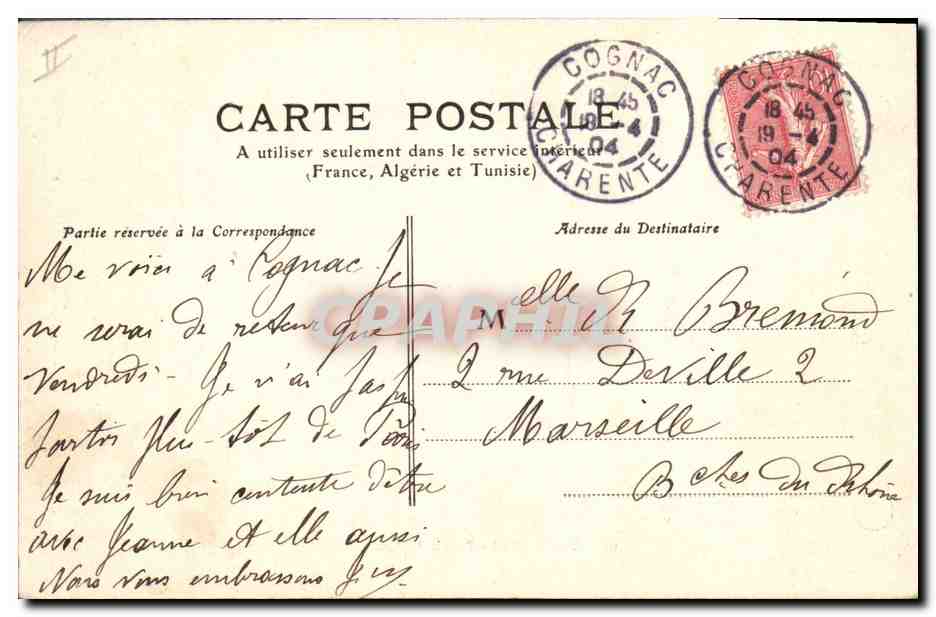 II
CARTE POSTALE
A utiliser seulement dans le service intérieur
(France, Algérie et Tunisie)
COGNAC
18 45
19 -4
04
CHARENTE
COGNAC
18 45
19 -4
04
CHARENTE
Partie réservée à la Correspondance
Me voici à Cognac. Je
ne serai de retour que
Vendredi - Je n'ai pas pu
partir plus-tôt de Paris
Je suis bien contente d'être
avec Jeanne et elle aussi
Nous vous embrassons
Adresse du Destinataire
Melle R Bremond
2 rue Deville 2
Marseille
Bches du Rhône
CPARHIL